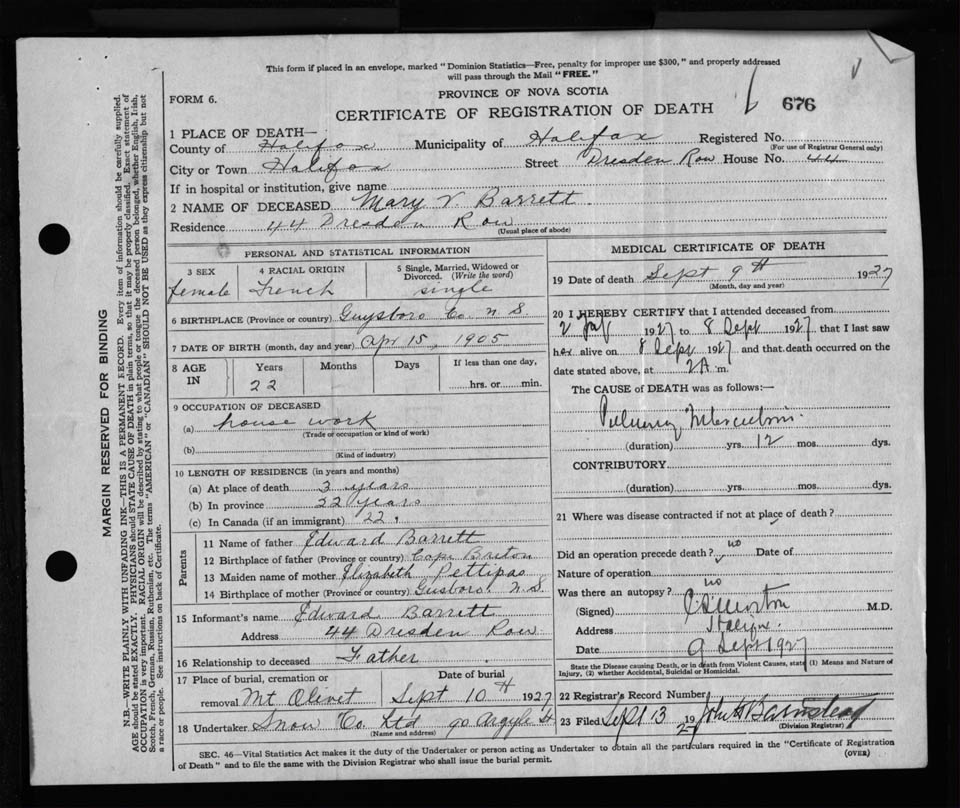 This form if placed in an envelope, marked "Dominion Statistics—Free, penalty for improper use $300," and properly addressed
will pass through the Mail "FREE."
PROVINCE OF NOVA SCOTIA
FORM 6.
CERTIFICATE OF REGISTRATION OF DEATH
676
1 PLACE OF DEATH—
County of Halifax Municipality of Halifax Registered No.
(For use of Registrar General only)
City or Town Halifax Street Dresden Row House No. 44
If in hospital or institution, give name
2 NAME OF DECEASED Mary V. Barrett.
Residence 44 Dresden Row
(Usual place of abode)
PERSONAL AND STATISTICAL INFORMATION
3 SEX 4 RACIAL ORIGIN 5 Single, Married, Widowed or
Divorced. (Write the word)
female French single
6 BIRTHPLACE (Province or country) Guysboro Co. N. S.
7 DATE OF BIRTH (month, day and year) Apr 15, 1905
8 AGE IN Years Months Days If less than one day,
22 hrs. or min.
9 OCCUPATION OF DECEASED
(a) house work
(Trade or occupation or kind of work)
(b)
(Kind of industry)
10 LENGTH OF RESIDENCE (in years and months)
(a) At place of death 3 years
(b) In province 22 years
(c) In Canada (if an immigrant) 22.
Parents
11 Name of father Edward Barrett
12 Birthplace of father (Province or country) Cape Breton
13 Maiden name of mother Elizabeth Pettipas
14 Birthplace of mother (Province or country) Gusboro. N. S.
15 Informant's name Edward Barrett
Address 44 Dresden Row.
16 Relationship to deceased Father
17 Place of burial, cremation or Date of burial
removal Mt Olivet Sept 10th 1927
18 Undertaker Snow Co. Ltd 90 Argyle St
(Name and address)
MEDICAL CERTIFICATE OF DEATH
19 Date of death Sept 9th 1927
(Month, day and year)
20 I HEREBY CERTIFY that I attended deceased from
2 1927 to 8 Sept 1927 that I last saw
her alive on 8 Sept 1927 and that death occurred on the
date stated above, at 2A m.
The CAUSE of DEATH was as follows:—
(duration) yrs. 12 mos. dys.
CONTRIBUTORY
(duration) yrs. mos. dys.
21 Where was disease contracted if not at place of death?
Did an operation precede death? no Date of
Nature of operation
Was there an autopsy? no
(Signed) M.D.
Address Halifax
Date 9 Sept 1927
State the Disease causing Death, or in death from Violent Causes, state (1) Means and Nature of
Injury, (2) whether Accidental, Suicidal or Homicidal.
22 Registrar's Record Number
23 Filed Sept 13 1927 John H Barnstead
(Division Registrar)
SEC. 46—Vital Statistics Act makes it the duty of the Undertaker or person acting as Undertaker to obtain all the particulars required in the "Certificate of Registration
of Death" and to file the same with the Division Registrar who shall issue the burial permit.
(OVER)
MARGIN RESERVED FOR BINDING
N.B.—WRITE PLAINLY WITH UNFADING INK—THIS IS A PERMANENT RECORD. Every item of information should be carefully supplied.
AGE should be stated EXACTLY. PHYSICIANS should STATE CAUSE OF DEATH in plain terms, so that it may be properly classified. Exact statement of
OCCUPATION is very important. RACIAL ORIGIN will be described by stating to what people or tongue the deceased person belonged, whether English, Irish,
Scotch, French, German, Russian, Ruthenian, etc. The terms "AMERICAN" or "CANADIAN" SHOULD NOT BE USED as they express citizenship but not
a race or people. See instructions on back of Certificate.